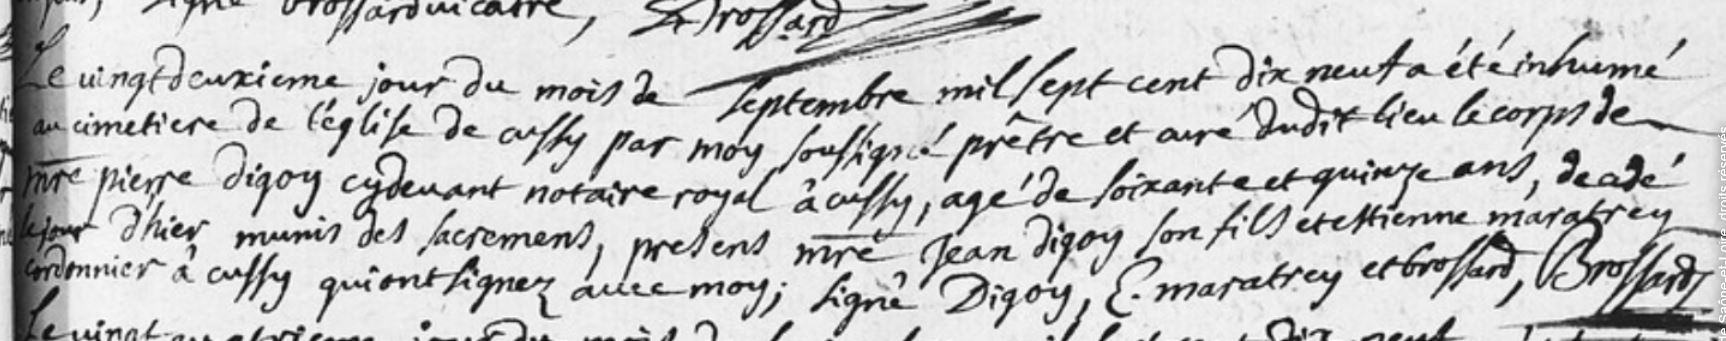 signé brossard vicaire, Brossard
Le vingtdeuxieme jour du mois de septembre mil sept cent dix neuf a été inhumé
au cimetiere de l'église de cussy par moy soussigné prêtre et curé dudit lieu le corps de
mre pierre digoy cydevant notaire royal à cussy, agé de soixante et quinze ans, decedé
le jour d'hier munis des sacremens, presens mre Jean digoy son fils et ettienne maratrey
cordonnier à cussy qui ont signez avec moy; signé Digoy, E. maratrey et brossard, Brossard
Le vingt quatrieme jour du mois de